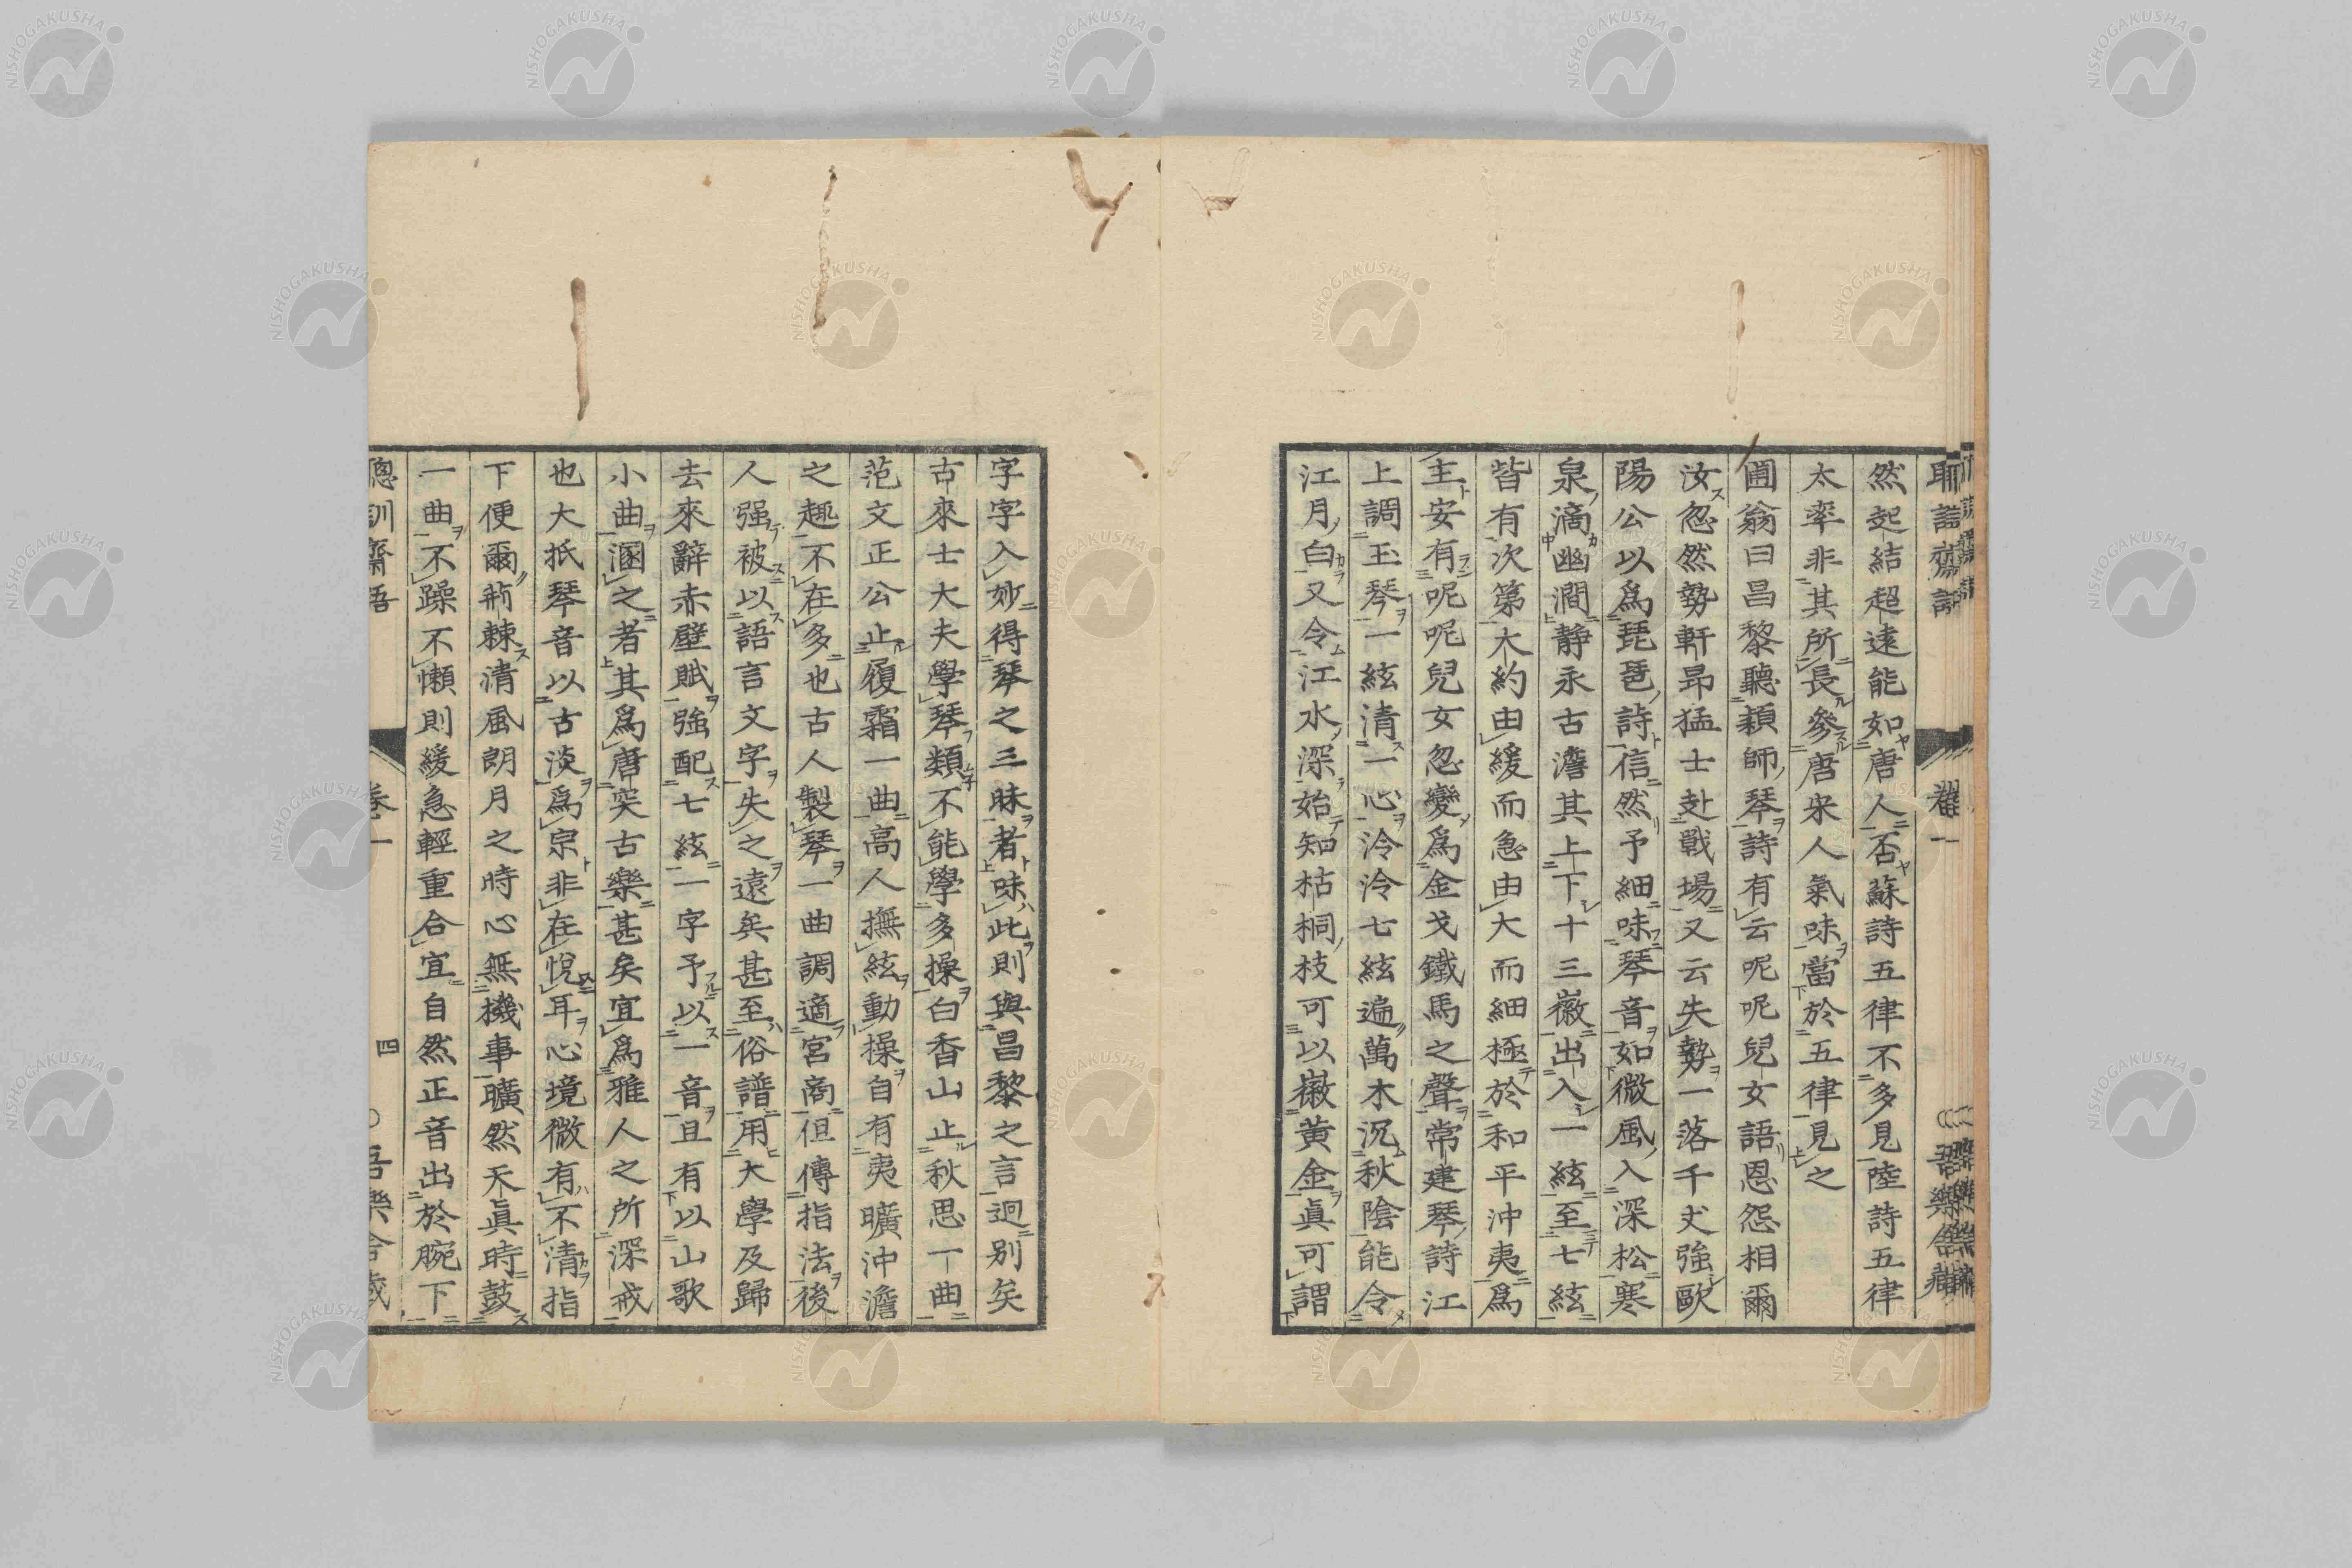 然起結超遠能如唐人否蘇詩五律不多見陸詩五律
太率非其所長參唐宋人氣味當於五律見之
圃翁曰昌黎聽穎師琴詩有云呢呢兒女語恩怨相爾
汝忽然勢軒昻猛士赴戰場又云失勢一落千丈強歐
陽公以爲琵琶詩信然予細味琴音如微風入深松寒
泉滴幽澗靜永古澹其上下十三徽出入一絃至七絃
皆有次第大約由緩而急由大而細極於和平沖夷爲
主安有呢呢兒女忽變爲金戈鐵馬之聲常建琴詩江
上調玉琴一絃清一心泠泠七絃遍萬木沉秋陰能令
江月白又令江水深始知枯桐枝可以徽黃金眞可謂
字字入妙得琴之三昧者味此則與昌黎之言迥別矣
古來士大夫學琴類不能學多操白香山止秋思一曲
范文正公止履霜一曲高人撫絃動操自有夷曠沖澹
之趣不在多也古人製琴一曲調適宮商但傳指法後
人强被以語言文字失之遠矣甚至俗譜用大學及歸
去來辭赤壁賦強配七絃一字予以一音且有以山歌
小曲溷之者其爲唐突古樂甚矣宜爲雅人之所深戒
也大抵琴音以古淡爲宗非在悅耳心境微有不清指
下便爾荊棘清風朗月之時心無機事曠然天眞時鼓
一曲不躁不懶則緩急輕重合宜自然正音出於腕下
聰訓齋語
卷一
四